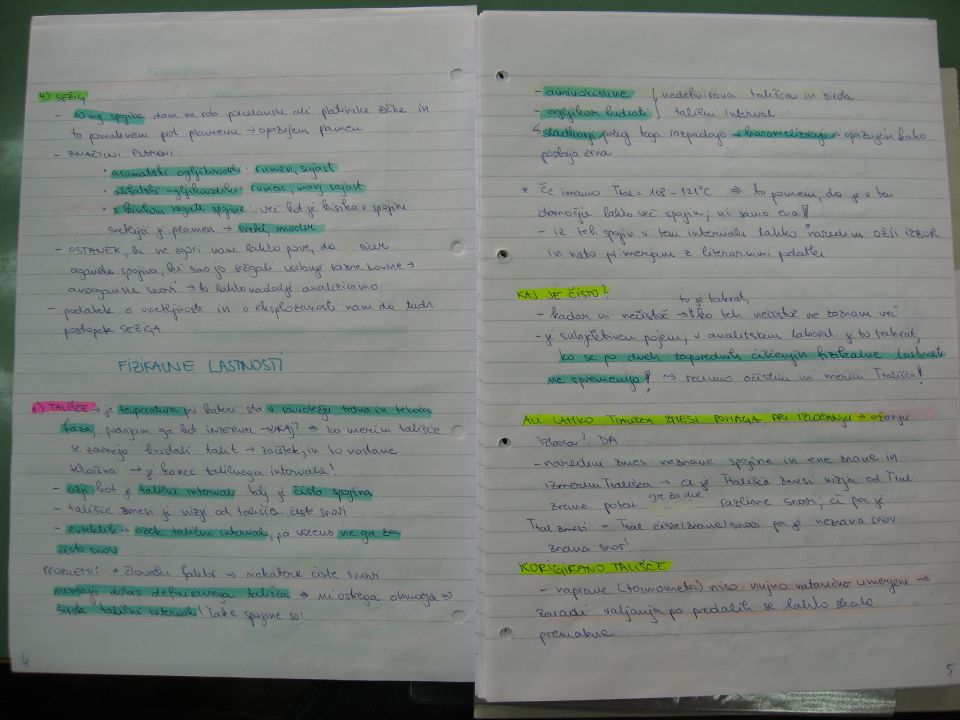 4) SEŽIG
- 10 mg spojine dam na rob porcelanske ali platinske žičke in
to pomaknem proti plamenu → opazujem plamen
- ZNAČILNI PLAMENI:
• aromatski ogljikovodiki: rumen, sajast
• alifatski ogljikovodiki: rumen, manj sajast
• s kisikom bogate spojine: več kot je kisika v spojini
svetlejši je plamen → svetel, moder
- OSTANEK, ki ne zgori nam lahko pove, da sicer
organska spojina, ki smo jo sežgali vsebuje razne kovine →
anorganske snovi → to lahko nadalje analiziramo
- podatek o vnetljivosti in o eksplozivnosti nam da tudi
postopek SEŽIGA
FIZIKALNE LASTNOSTI
1) TALIŠČE → je temperatura pri kateri sta v ravnotežju trdna in tekoča
faza, podajam ga kot INTERVAL → ZAKAJ? → ko merim tališče
se začnejo kristali talit → začetek, in ko nastane
tekočina → je konec talilnega intervala!
- ožji kot je talilni interval bolj je čista spojina
- tališče zmesi je nižje od tališča čiste snovi
- evtektik → ozek talilni interval, pa vseeno ne gre za
čisto snov
PROBLEMI: * človeški faktor → nekatere čiste snovi
nimajo dobro definiranega tališča → ni ostrega območa →
širok talilni interval! Take spojine so:
4
- aminokisline } nedefinirana tališča in širok
- ogljikovi hidrati } talilni interval
↳ sladkorji poleg tega razpadajo → karamelizirajo → opazujem kako
postaja črna
* Če imamo Ttal = 118 - 121°C ⇒ to pomeni, da je v tem
območju lahko več spojin; ni samo ena!
- iz teh spojin v tem intervalu lahko naredim OŽJI IZBOR
in nato primerjam z literarnimi podatki
KAJ JE ČISTO?
to je takrat,
- kadar ni nečistoč → ko teh nečistoč ne zaznam več
- je subjektiven pojem; v analitskem laborat. je to takrat,
ko se po dveh zaporednih čiščenjih fizikalne lastnosti
ne spremenijo! → recimo očistim in merim Ttališča!
ALI LAHKO TALIŠČA ZMESI POMAGA PRI IZLOČANJU → ožanju
izbora? DA
- naredim zmes neznane spojine in ene znane in
izmerim Ttališča → če je Ttališča zmesi nižja od Ttal
znane potem gre za dve različne snovi; če pa je
Ttal zmesi = Ttal čiste (znane) snovi pa je neznana snov
znana snov!
KORIGIRANO TALIŠČE
- naprave (termometri) niso nujno natančno umerjeni →
zaradi valjanja po predalih se lahko skala
premakne
5